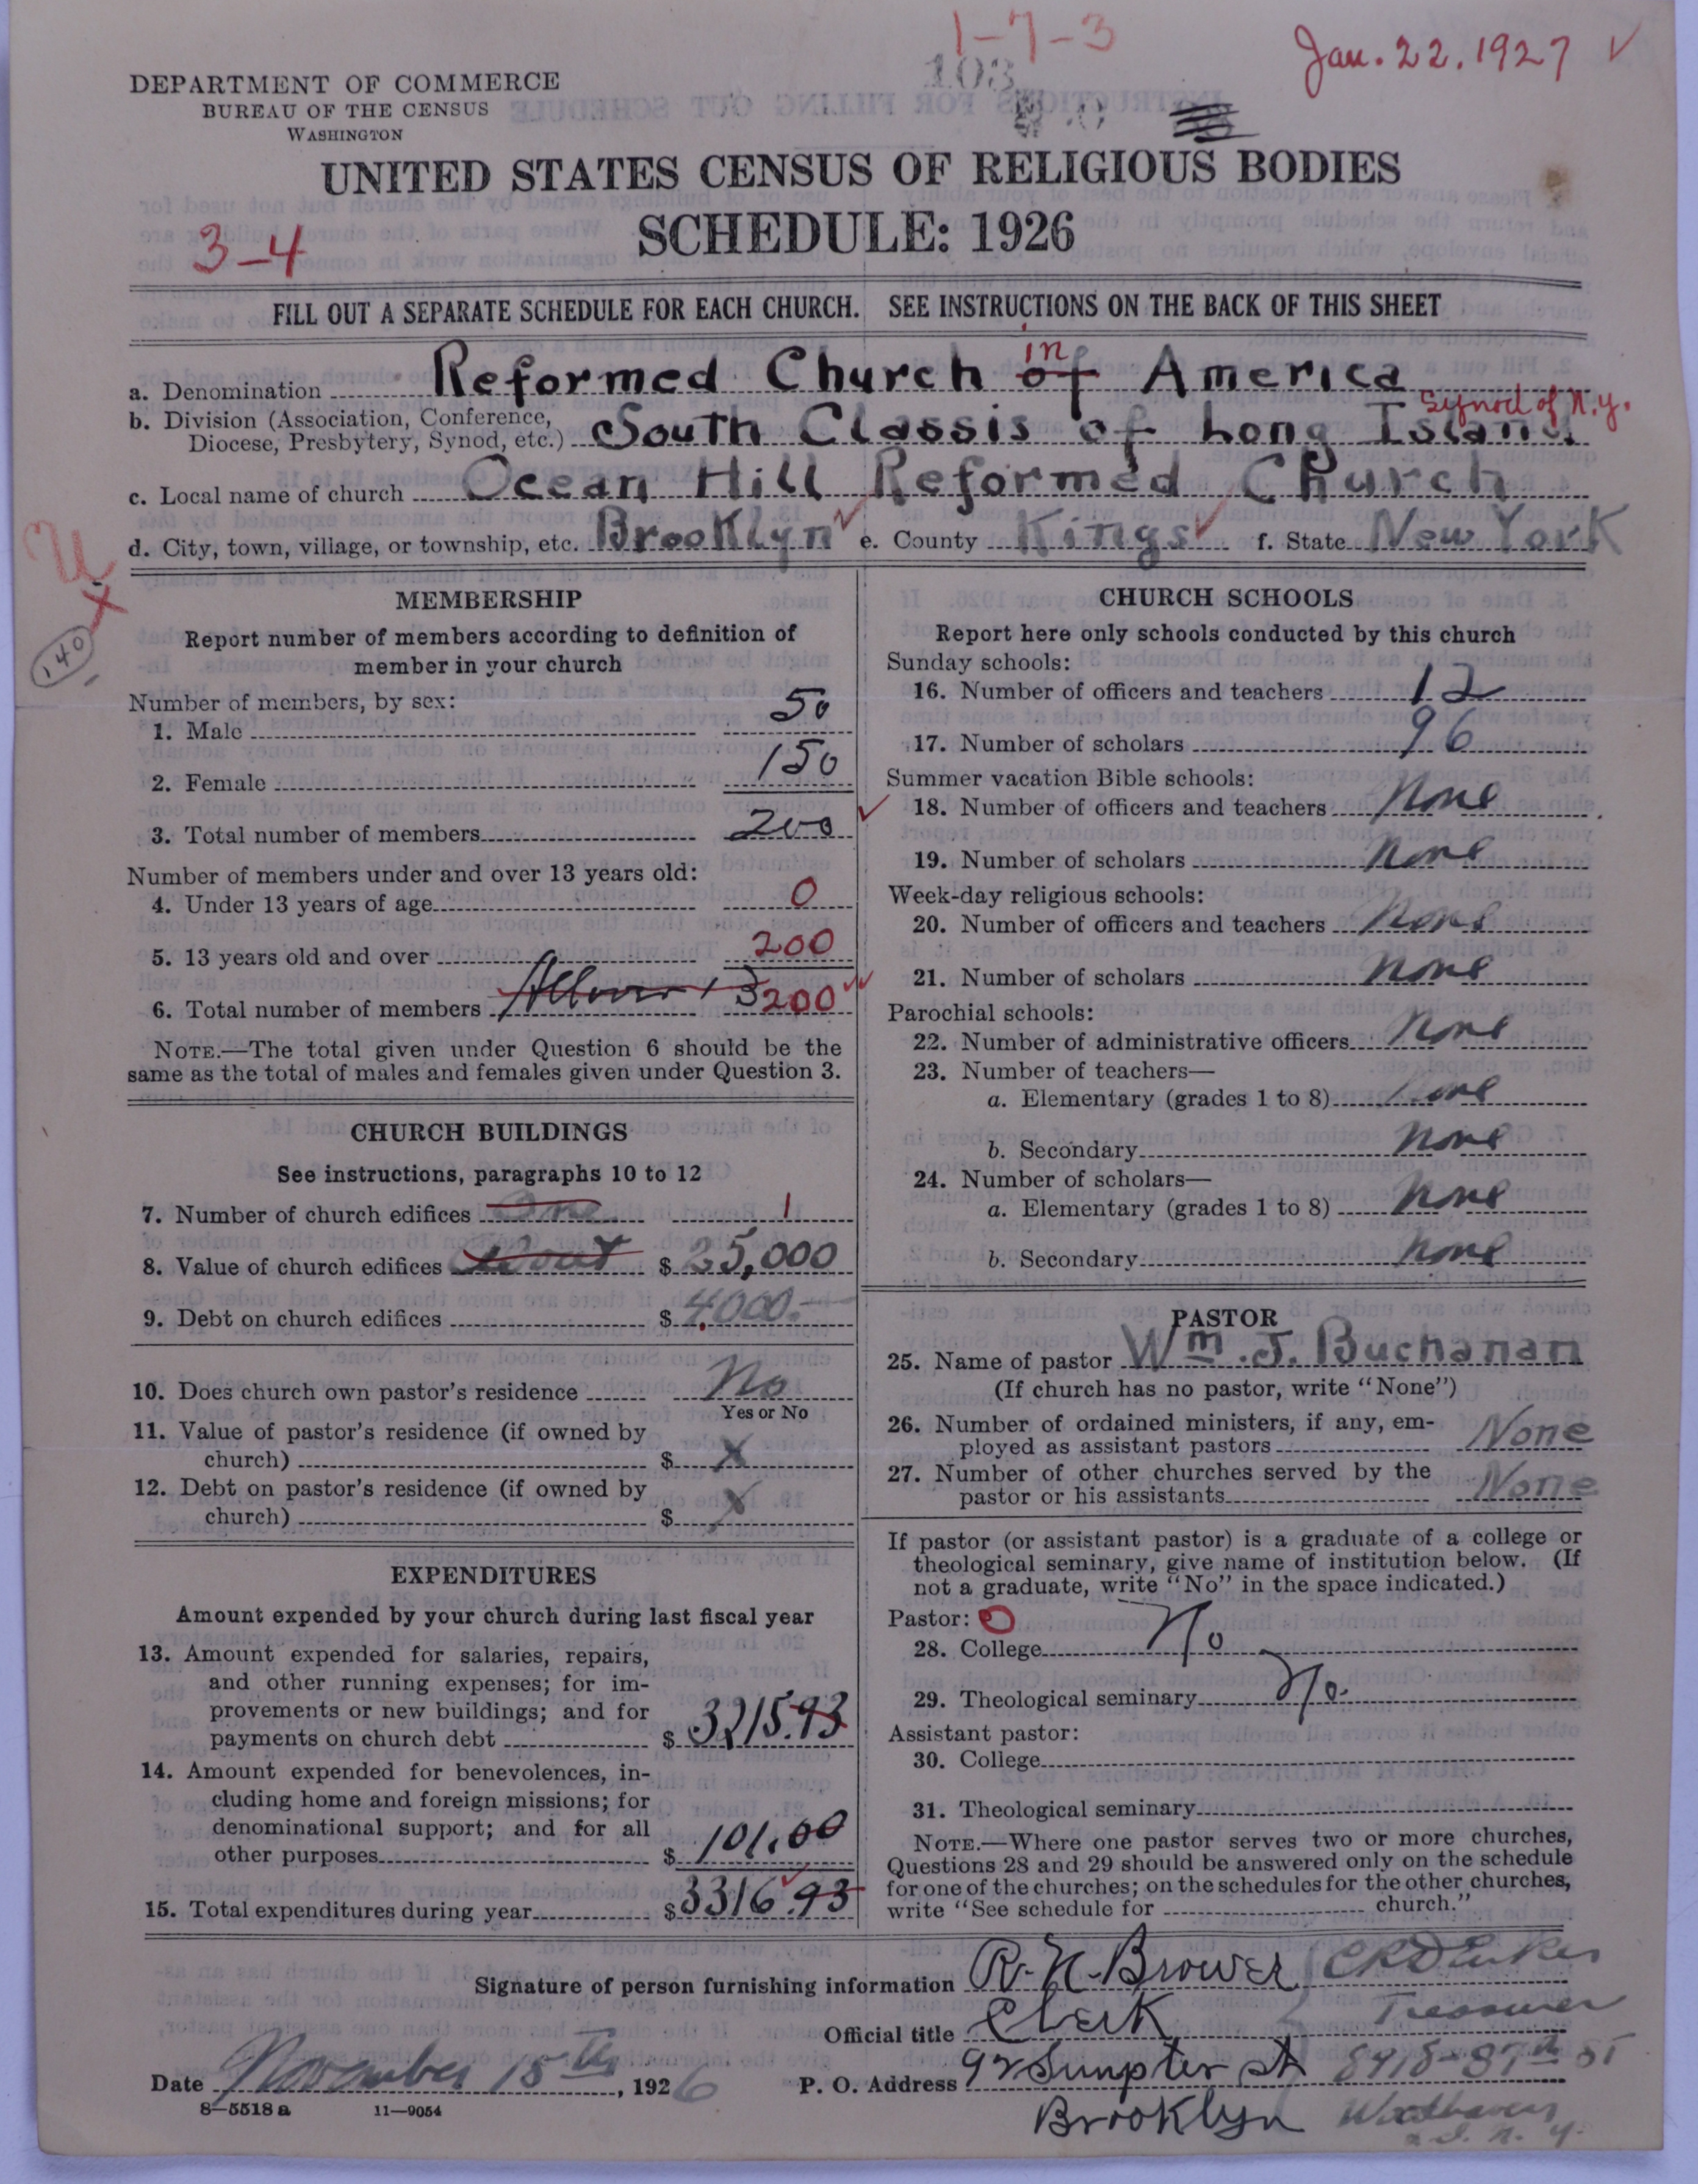 1-7-3
Jan. 22. 1927 ✓
103
DEPARTMENT OF COMMERCE
BUREAU OF THE CENSUS
WASHINGTON
UNITED STATES CENSUS OF RELIGIOUS BODIES
SCHEDULE: 1926
3-4
FILL OUT A SEPARATE SCHEDULE FOR EACH CHURCH. SEE INSTRUCTIONS ON THE BACK OF THIS SHEET
in
a. Denomination Reformed Church of America
Synod of N.Y.
b. Division (Association, Conference,
Diocese, Presbytery, Synod, etc.) South Classis of Long Island
c. Local name of church Ocean Hill Reformed Church
d. City, town, village, or township, etc. Brooklyn ✓ e. County Kings ✓ f. State New York
X
140
MEMBERSHIP
Report number of members according to definition of
member in your church
Number of members, by sex:
1. Male 50
2. Female 150
3. Total number of members 200 ✓
Number of members under and over 13 years old:
4. Under 13 years of age 0
5. 13 years old and over 200
6. Total number of members All over 13 200 ✓
NOTE.—The total given under Question 6 should be the
same as the total of males and females given under Question 3.
CHURCH BUILDINGS
See instructions, paragraphs 10 to 12
7. Number of church edifices One 1
8. Value of church edifices About $ 25,000
9. Debt on church edifices $ 4,000.—
10. Does church own pastor's residence No
Yes or No
11. Value of pastor's residence (if owned by
church) $ X
12. Debt on pastor's residence (if owned by
church) $ X
EXPENDITURES
Amount expended by your church during last fiscal year
13. Amount expended for salaries, repairs,
and other running expenses; for im-
provements or new buildings; and for
payments on church debt $ 3215.93
14. Amount expended for benevolences, in-
cluding home and foreign missions; for
denominational support; and for all
other purposes $ 101.00
15. Total expenditures during year $ 3316.93
CHURCH SCHOOLS
Report here only schools conducted by this church
Sunday schools:
16. Number of officers and teachers 12
17. Number of scholars 96
Summer vacation Bible schools:
18. Number of officers and teachers None
19. Number of scholars None
Week-day religious schools:
20. Number of officers and teachers None
21. Number of scholars None
Parochial schools:
22. Number of administrative officers None
23. Number of teachers—
a. Elementary (grades 1 to 8) None
b. Secondary None
24. Number of scholars—
a. Elementary (grades 1 to 8) None
b. Secondary None
PASTOR
25. Name of pastor Wm. J. Buchanan
(If church has no pastor, write "None")
26. Number of ordained ministers, if any, em-
ployed as assistant pastors None
27. Number of other churches served by the
pastor or his assistants None
If pastor (or assistant pastor) is a graduate of a college or
theological seminary, give name of institution below. (If
not a graduate, write "No" in the space indicated.)
Pastor: O
28. College No
29. Theological seminary No.
Assistant pastor:
30. College
31. Theological seminary
NOTE.—Where one pastor serves two or more churches,
Questions 28 and 29 should be answered only on the schedule
for one of the churches; on the schedules for the other churches,
write "See schedule for church."
Signature of person furnishing information R. N. Brower
Official title Clerk Treasurer
Date November 15th, 1926 P. O. Address 92 Sumpter St 8918-87th St
Brooklyn Woodhaven
L. I. N. Y.
8—5518 a 11—9054